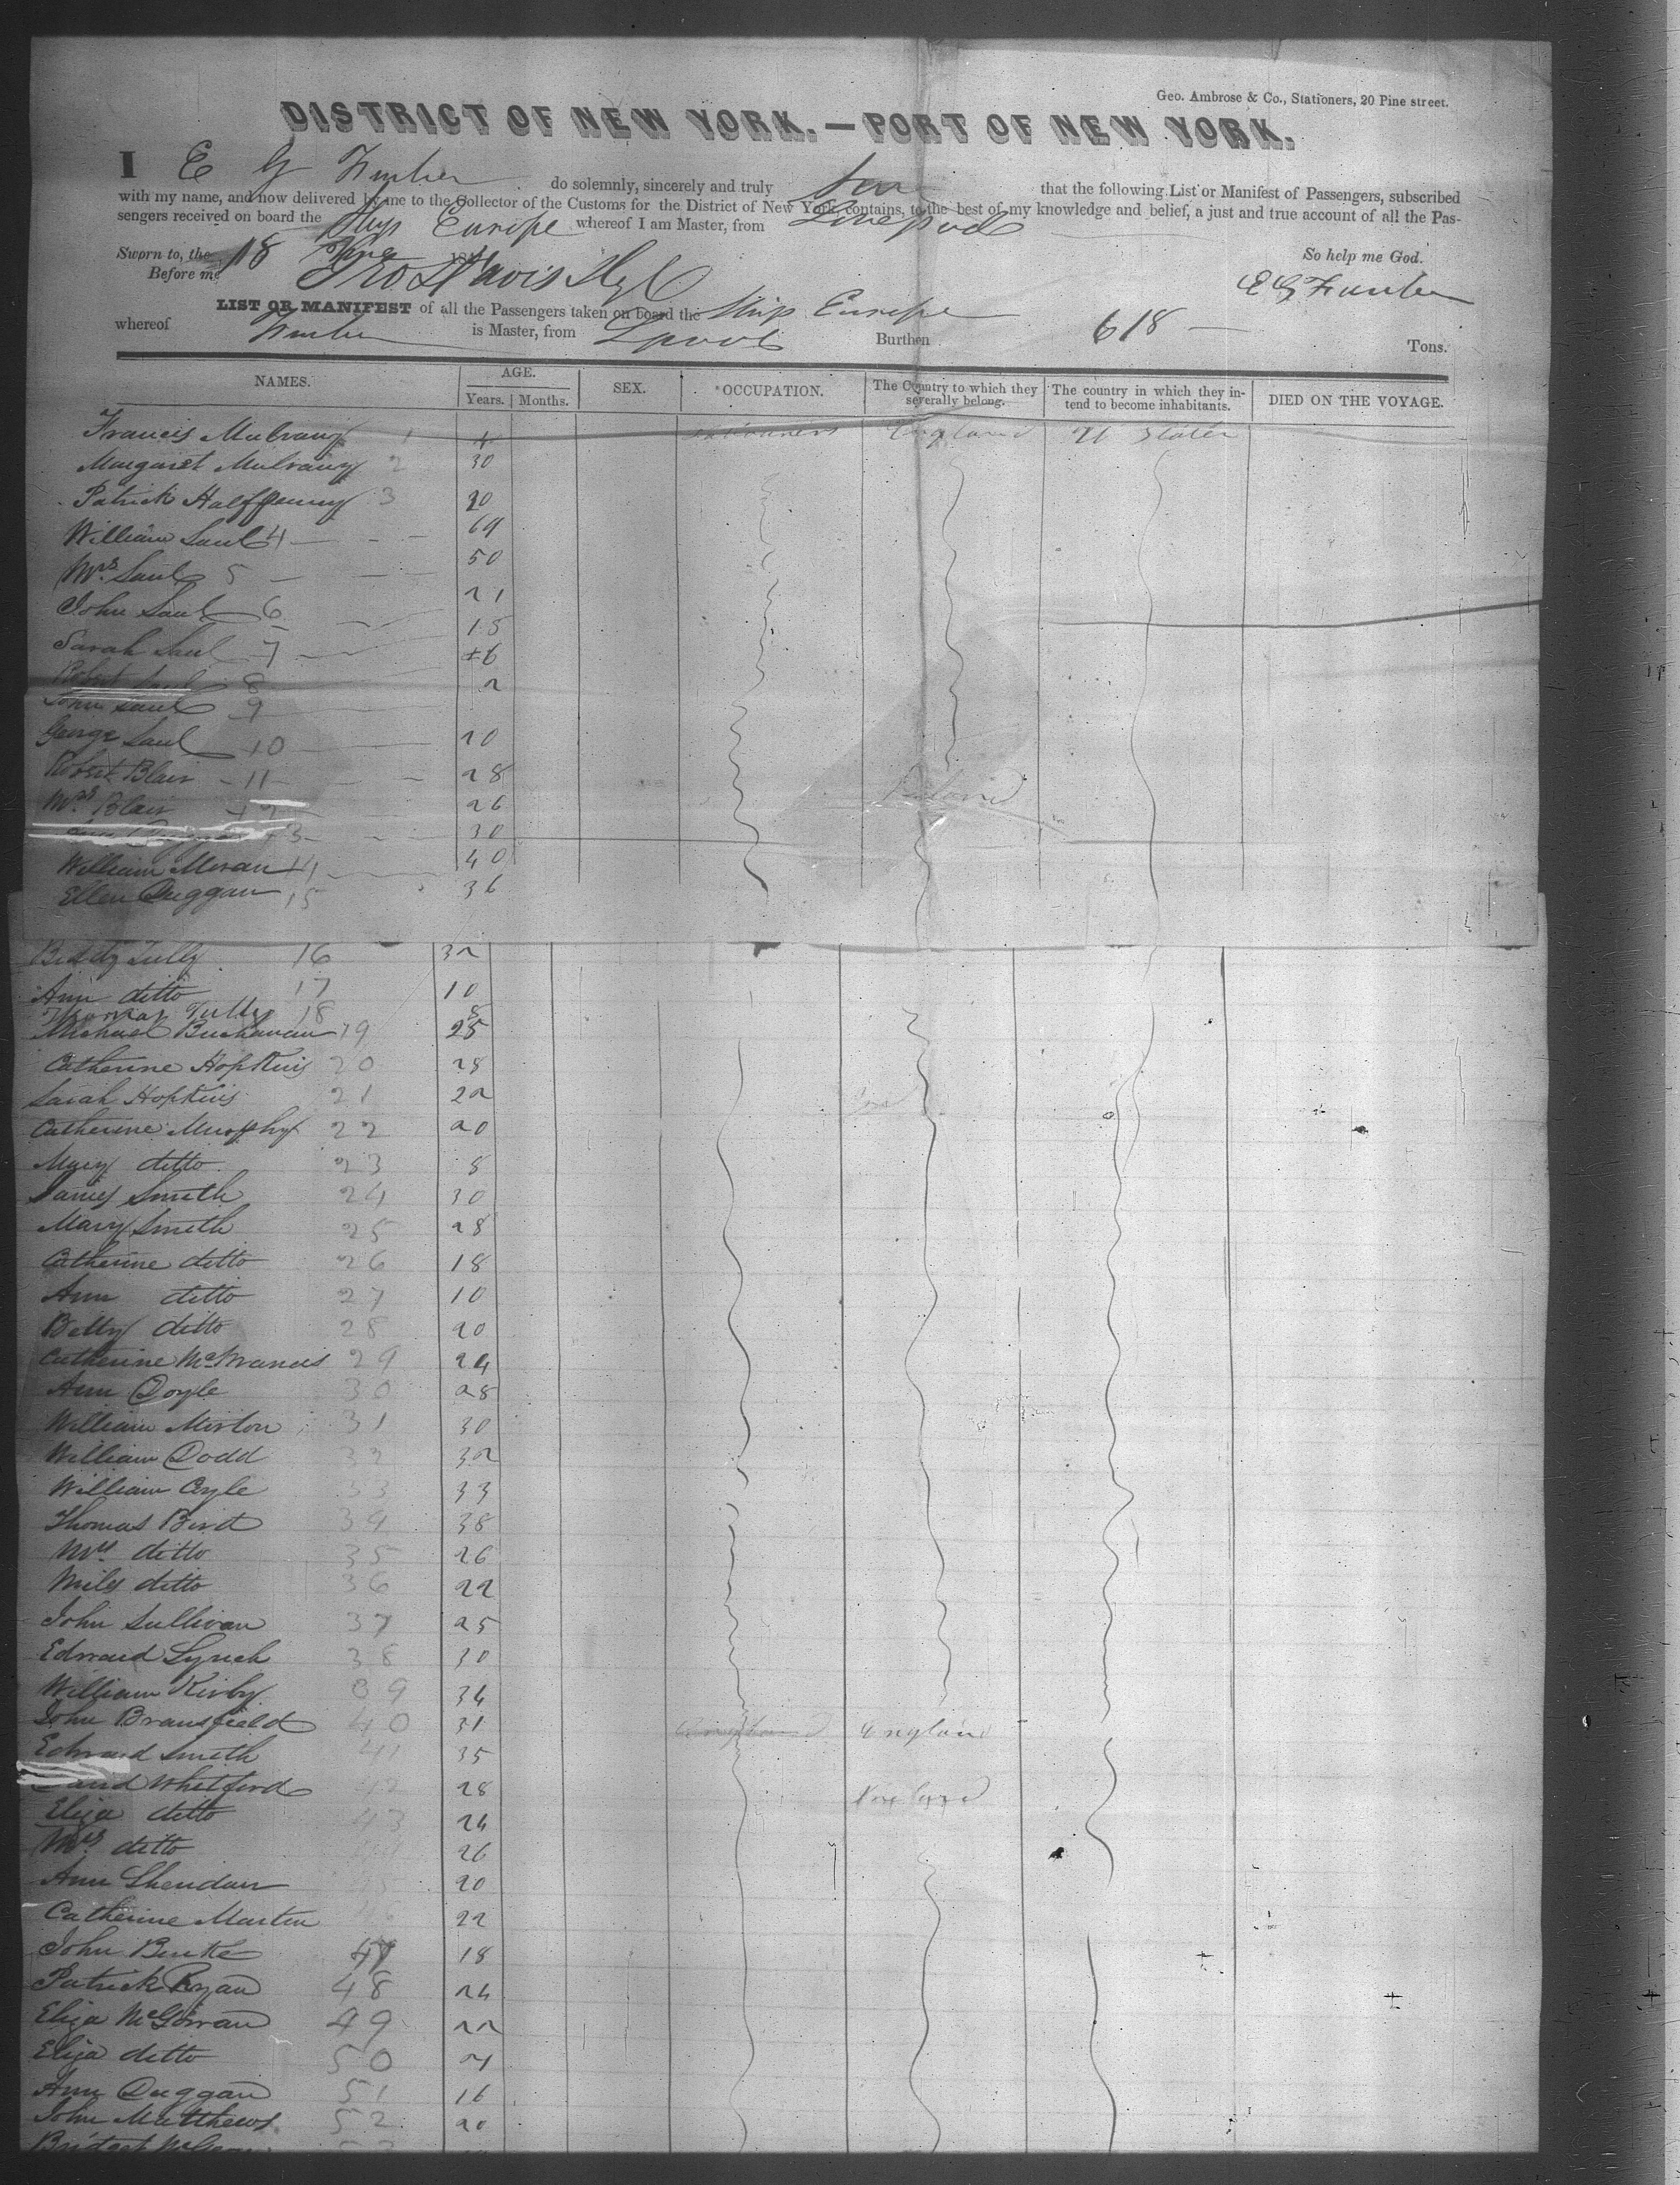 Geo. Ambrose & Co., Stationers, 20 Pine street.
DISTRICT OF NEW YORK.—PORT OF NEW YORK.
I E G do solemnly, sincerely and truly that the following List or Manifest of Passengers, subscribed
with my name, and now delivered by me to the Collector of the Customs for the District of New York, contains, to the best of my knowledge and belief, a just and true account of all the Pas-
sengers received on board the Ship Europe whereof I am Master, from Liverpool
Sworn to, the 18 184
So help me God.
Before me
E G
LIST OR MANIFEST of all the Passengers taken on board the Ship Europe
whereof is Master, from Lpool Burthen 618 Tons.
NAMES. AGE. Years. Months. SEX. OCCUPATION. The Country to which they severally belong. The country in which they in- tend to become inhabitants. DIED ON THE VOYAGE.
Francis Mulvany 1 England U States
Margaret Mulvany 2 30
Patrick Halfpenny 3 20
William Saul 4 69
Mrs. Saul 5 50
John Saul 6 21
Sarah Saul 7 15
Robert Saul 8
John Saul 9 2
George Saul 10 20
Robert Blair 11 28 Ireland
Mrs. Blair 12 26
13 30
William Moran 14 40
Ellen Duggan 15 36
Tully 16 32
Ann ditto 17 10
Thomas Tully 18 8
Michael Buchanan 19 25
Catherine Hopkins 20 28
Sarah Hopkins 21 22
Catherine Murphy 22 20
Mary ditto 23 8
James Smith 24 30
Mary Smith 25 28
Catherine ditto 26 18
Ann ditto 27 10
Betty ditto 28 20
Catherine 29 24
Ann Doyle 30 28
William Morton 31 30
William Dodd 32 32
William Coyle 33 33
Thomas Bird 34 38
Mrs. ditto 35 26
Miles ditto 36 22
John Sullivan 37 25
Edward Lynch 38 30
William Kirby 39 34
John Bransfield 40 31 England
Edward Smith 41 35
David Whitford 42 28 Ireland
Eliza ditto 43 24
Mrs. ditto 26
Ann Sheridan 20
Catherine Martin 22
John Burke 47 18
Patrick Ryan 48 24
Eliza McGowan 49 22
Eliza ditto 50
Ann Duggan 51 16
John Matthews 52 20
Bridget